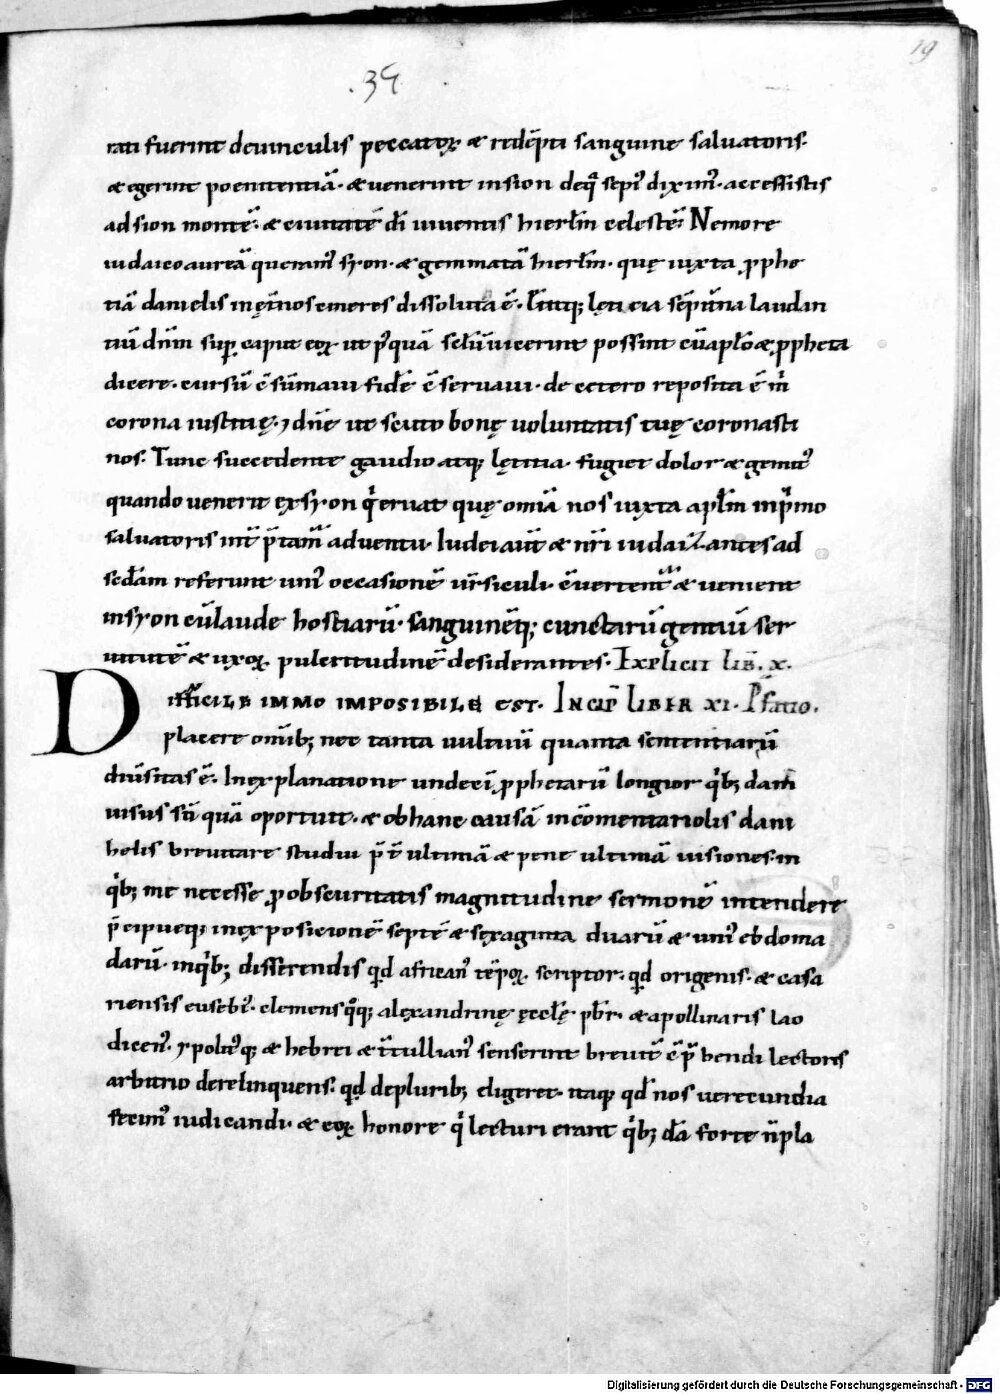 19
.34.
rati fuerint deuinculis peccatoꝝ & redēpti sanguine saluatoris.
& egerint poenitentiā. & uenerint insion deq̄ sepi' dixim'. accessistis
ad sion montē. & ciuitatē dī uiuentis hierłm celestē. Nemore
iudaico aureā queram' syon. & gemmatā hierłm. quę iuxta ꝓphe
tiā danielis in ęt̄nos cineres dissoluta ē. letitia sēpit̄na laudan
tiū dn̄m suꝑ caput eoꝝ ut pꝰquā uicerint possint cū aplo & ꝓpheta
dicere. cursū cōsūmaui fidē seruaui. de cetero reposita ē m̄
corona iustitię. ⁊ dn̄e ut scuto bonę uoluntatis tuę coronasti
nos. Tunc succedente gaudio atq; lętitia. fugiet dolor & gemit'
quando uenerit ex syon q̇ eruat quę omīa nos iuxta aplm inp̄mo
saluatoris int̄p̄tamur aduentu. Iudei aūt & nr̄i iudaiz̄antes ad
scd̄am referunt uni' occasionē ūrsiculi. & uenient
insyon cū laude hostiarū. sanguinēq; cunctarū gentiū ser
uitutē & uxoꝝ pulcritudinē desiderantes. Explicit lib. x.
Difficile immo imposibile est. Incip̄ liber xi. P̄fatio.
placere omīb; nec tanta uultuū quanta sententiarū
diūsitas ē. In explanatione undecī ꝓphetarū longior q̇b; dam
uisus sū quā oportuit. & ob hanc causā incōmentariolis dani
helis breuitati studui p̄t̄ ultimā & pene ultimā uisiones. in
q̇b; me necesse ꝓ obscuritatis magnitudine sermonē intendere
p̄cipueq; inexposicionē septē & sexaginta duarū & uni' ebdoma
darū. inq̇b; disserendis qd african' tēpoꝝ scriptor. qd origenis. & cesa
riensis eusebi'. clemens q̊q; alexandrinę ęccłę pbr̄. & apollinaris lao
dicen'. ypolit'q; & hebrei & t̄tullian' senserint breuit̄ cōp̄hendi lectoris
arbitrio derelinquens. qd depluriḃ; eligeret. itaq; qd nos uerecundia
fecim' iudicandi. & eoꝝ honore q̇ lecturi erant q̇b; dā forte n̄ pla
Digitalisierung gefördert durch die Deutsche Forschungsgemeinschaft - DFG